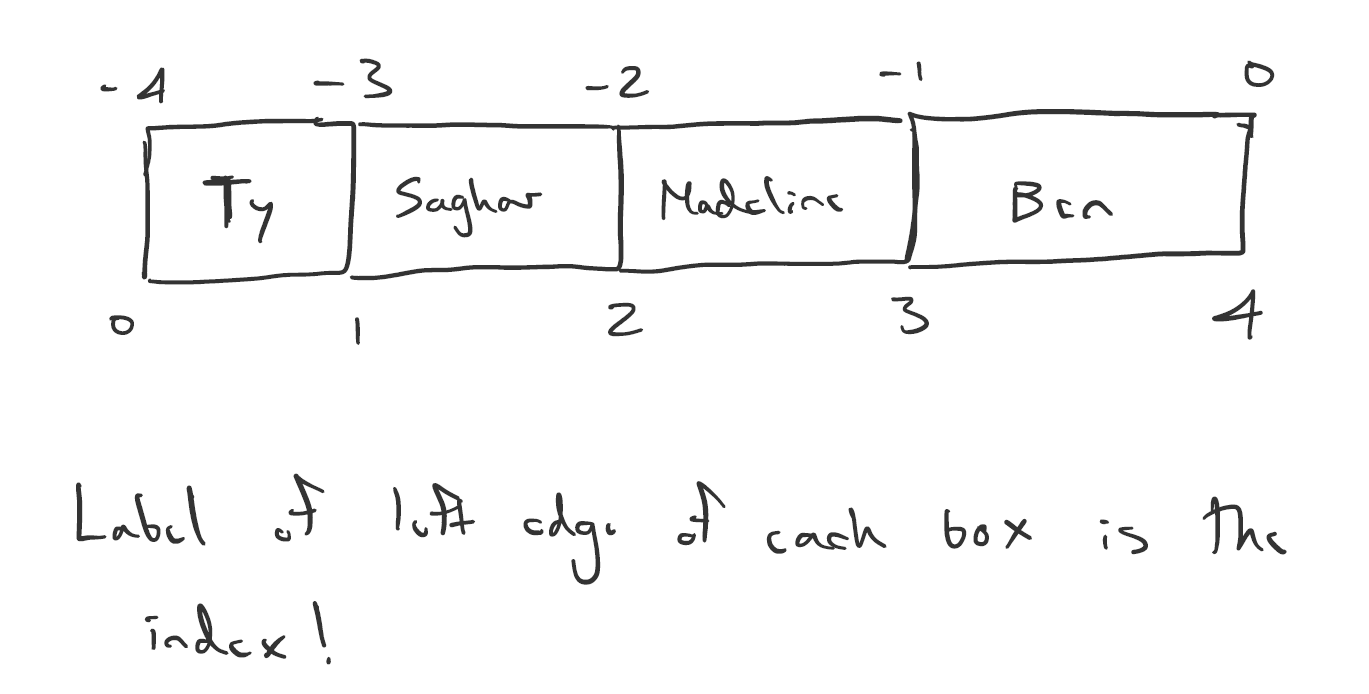 -4 -3 -2 -1 0
Ty Saghar Madeline Ben
0 1 2 3 4
Label of left edge of each box is the
index!